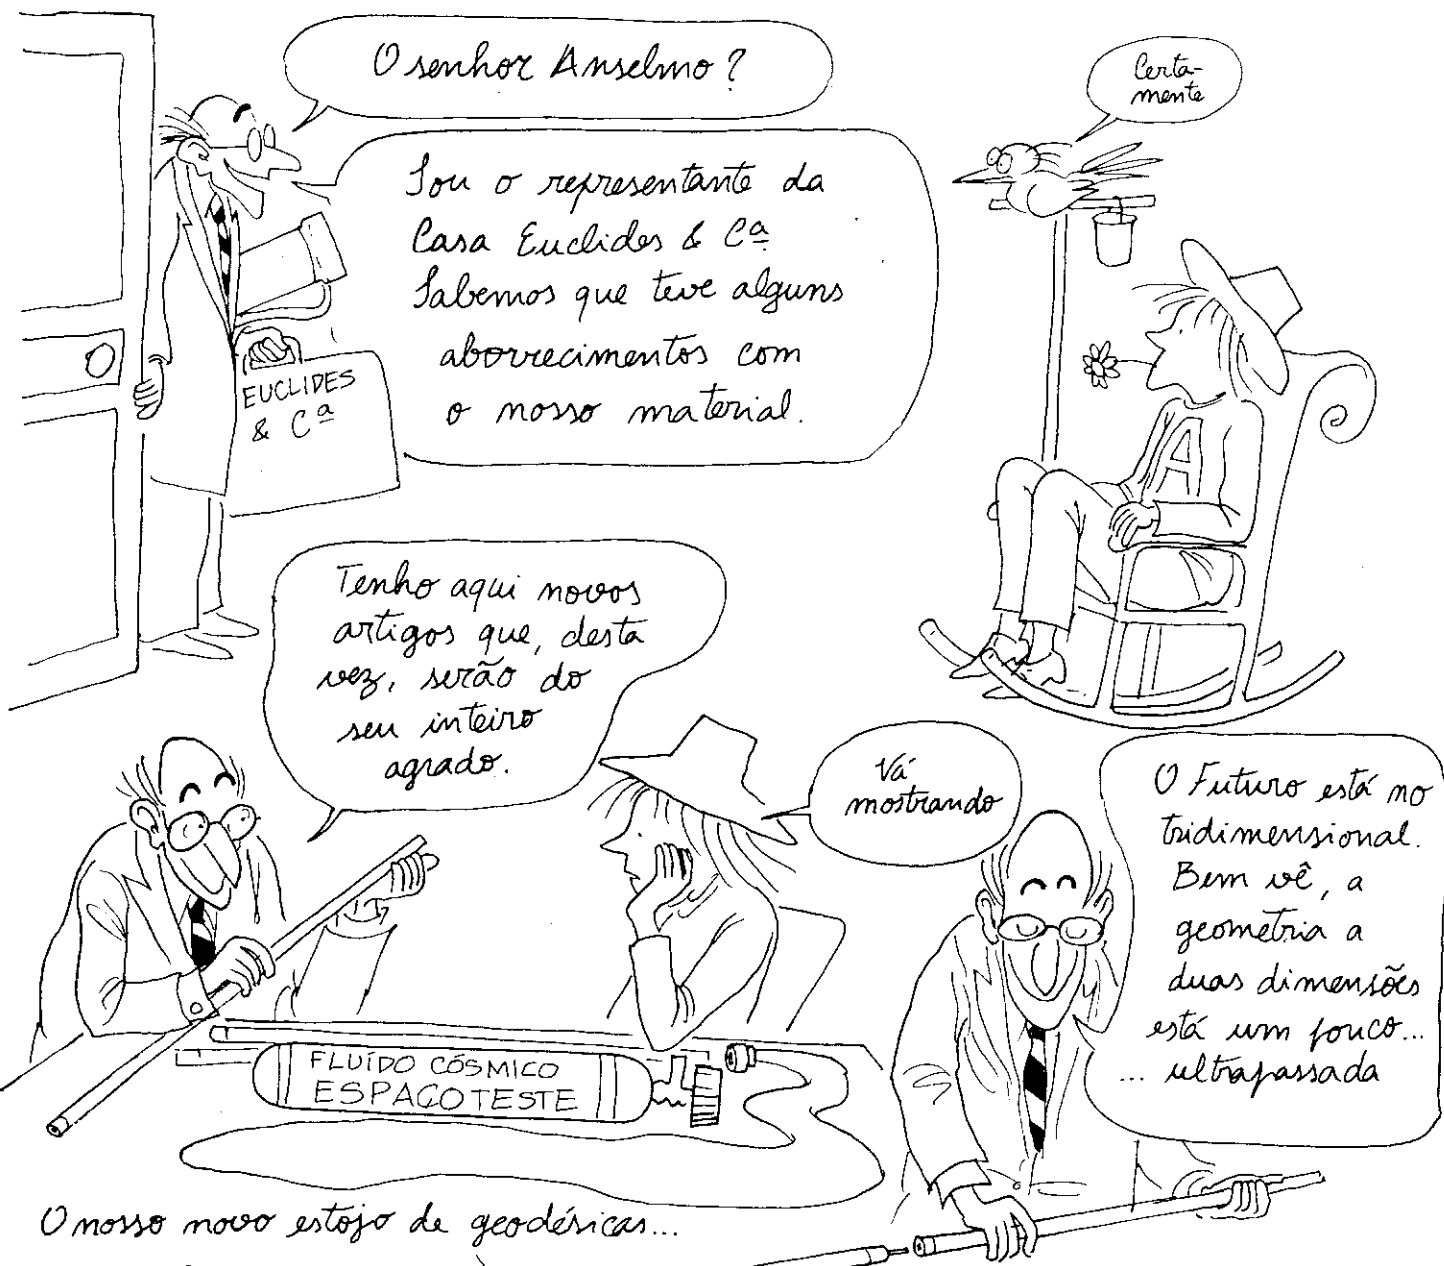 O senhor Anselmo?
Certa-
mente
Sou o representante da
Casa Euclides & Cª
Sabemos que teve alguns
aborrecimentos com
o nosso material.
EUCLIDES
& Cª
Tenho aqui novos
artigos que, desta
vez, serão do
seu inteiro
agrado.
Vá
mostrando
O Futuro está no
tridimensional.
Bem vê, a
geometria a
duas dimensões
está um pouco...
... ultrapassada
FLUÍDO CÓSMICO
ESPAÇOTESTE
O nosso novo estojo de geodésicas...